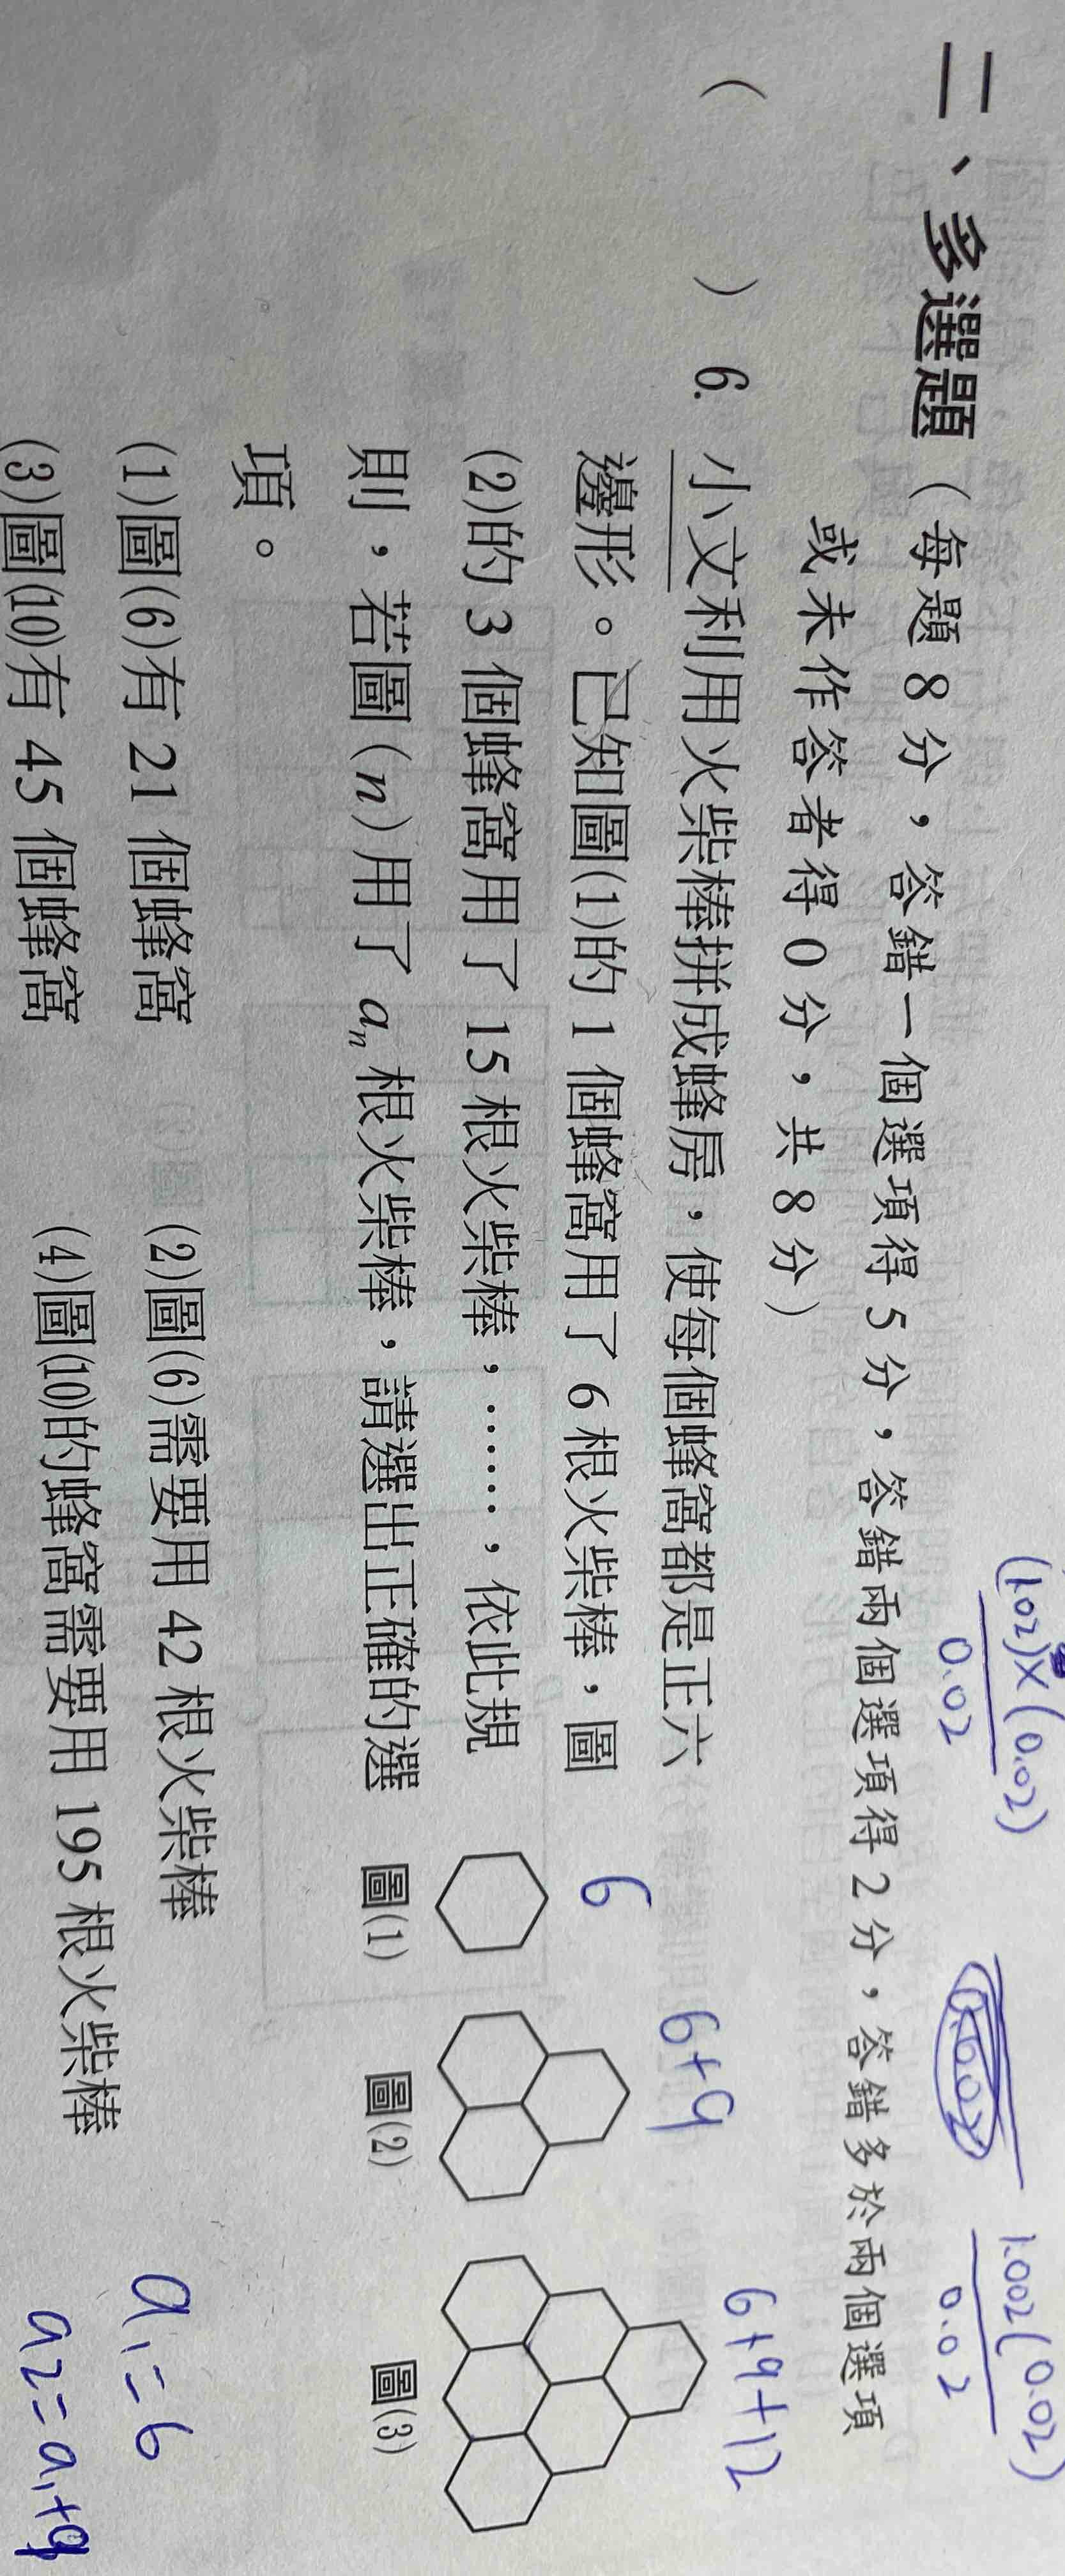 二、多選題（每題 8 分，答錯一個選項得 5 分，答錯兩個選項得 2 分，答錯多於兩個選項
或未作答者得 0 分，共 8 分）
(1.02)×(0.02)
0.02
1.002(0.02)
0.02
（ ）6. 小文利用火柴棒拼成蜂房，使每個蜂窩都是正六
邊形。已知圖(1)的 1 個蜂窩用了 6 根火柴棒，圖
(2)的 3 個蜂窩用了 15 根火柴棒，……，依此規
則，若圖(n)用了 aₙ 根火柴棒，請選出正確的選
項。
6
6+9
6+9+12
圖(1) 圖(2) 圖(3)
(1)圖(6)有 21 個蜂窩 (2)圖(6)需要用 42 根火柴棒
(3)圖(10)有 45 個蜂窩 (4)圖(10)的蜂窩需要用 195 根火柴棒
a₁=6
a₂=a₁+9